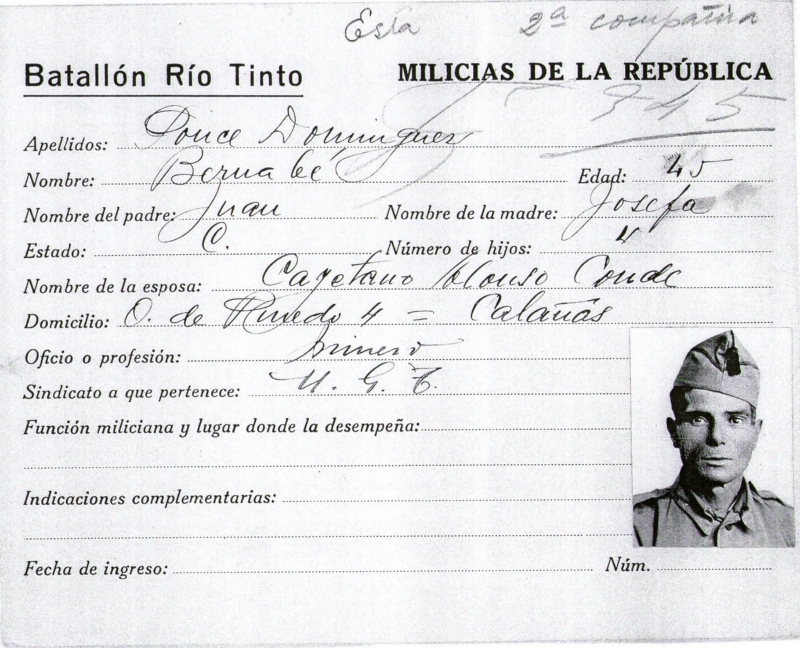 Esta 2ª compañia
Batallón Río Tinto MILICIAS DE LA REPÚBLICA
345
Apellidos: Ponce Dominguez
Nombre: Bernabé Edad: 45
Nombre del padre: Juan Nombre de la madre: Josefa
Estado: C. Número de hijos: 4
Nombre de la esposa: Cayetano Alonso Conde
Domicilio: O. de 4 = Calañas
Oficio o profesión: minero
Sindicato a que pertenece: U. G. T.
Función miliciana y lugar donde la desempeña:
Indicaciones complementarias:
Fecha de ingreso: Núm.